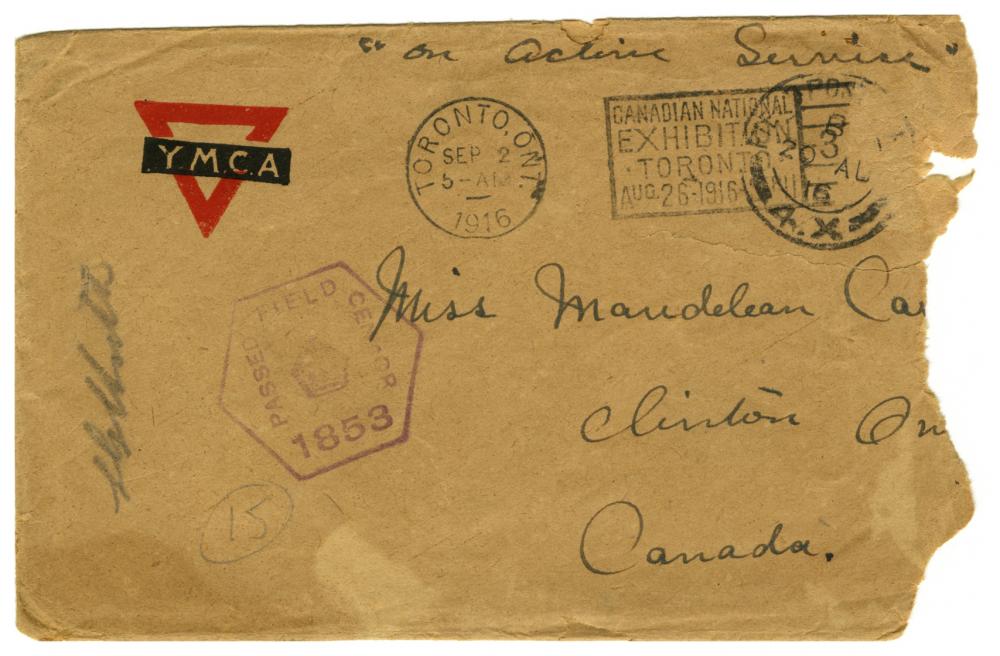 "on Active Service"
Y.M.C.A
TORONTO, ONT.
SEP 2
5-AM
1916
CANADIAN NATIONAL
EXHIBITION
TORONTO
AUG. 26-1916
PASSED FIELD CENSOR
1853
Miss Maudelean Ca
Clinton On
Canada.
15